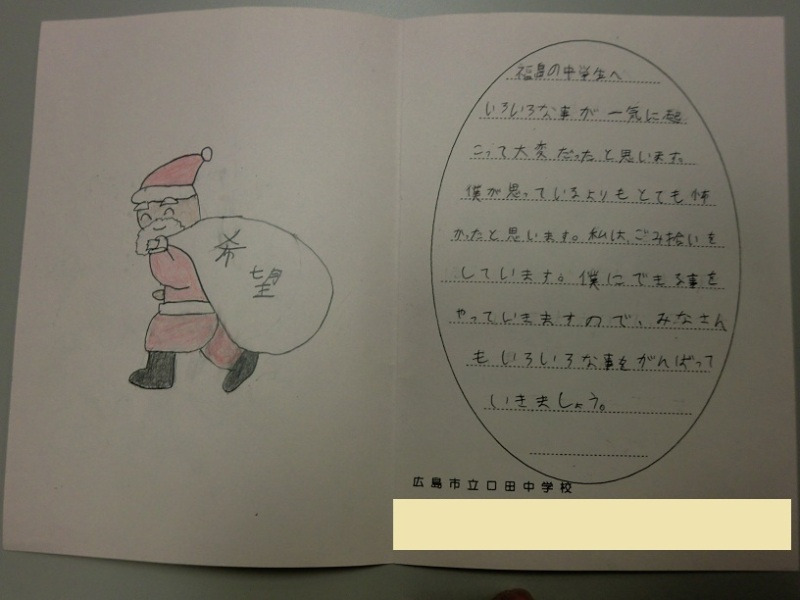 希
望
福島の中学生へ
いろいろな事が一気に起
こって大変だったと思います。
僕が思っているよりもとても怖
かったと思います。私は、ごみ拾いを
しています。僕にできる事を
やっていきますので、みなさん
もいろいろな事をがんばって
いきましょう。
広島市立口田中学校